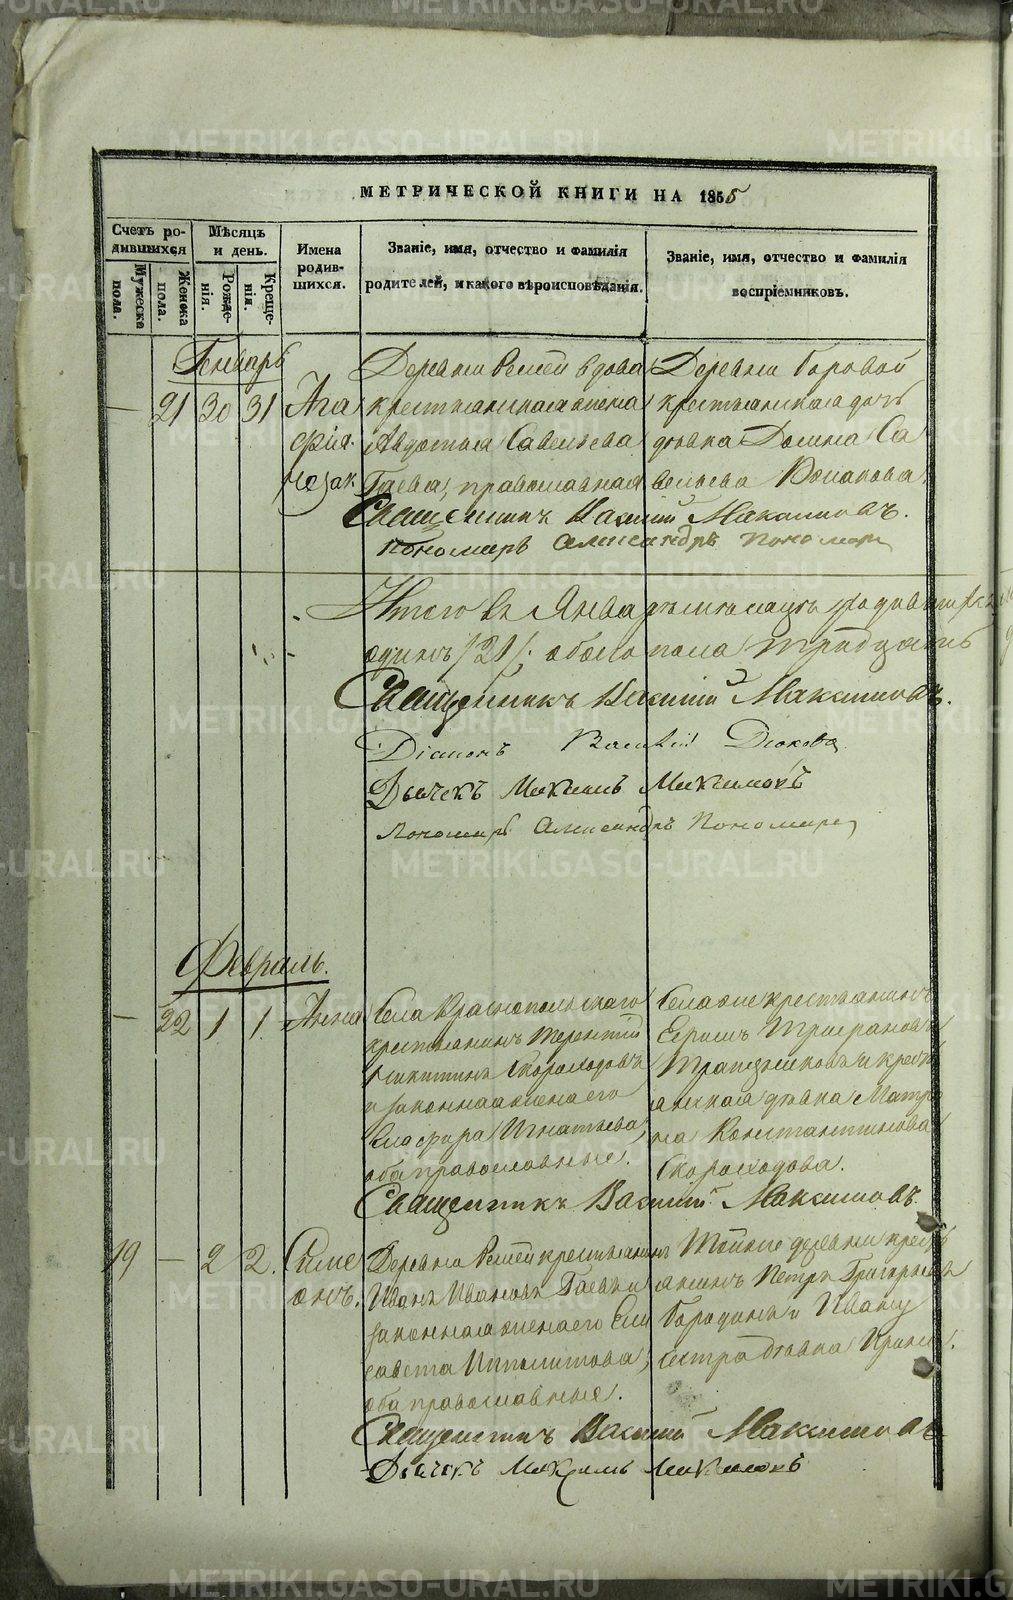 METRIKI.GASO-URAL.RU
МЕТРИЧЕСКОЙ КНИГИ НА 1855
Счетъ ро-
дившихся
Мужеска
пола.
Женска
пола.
Мѣсяцъ
и день.
Рожде-
нія.
Креще-
нія.
Имена
родив-
шихся.
Званіе, имя, отчество и фамилія
родителей, и какого вѣроисповѣданія.
Званіе, имя, отчество и фамилія
воспріемниковъ.
Генварь
21 30 31
Ага
фія
незак.
Деревни вдова
крестьянская жена
Авдотья Савельева
Гаева, православная
Деревни Боровой
крестьянская дочь
дѣвка Са
вельева Романова
Священникъ Василій Макашновъ.
Пономарь Александръ Пономарев
Итого въ Январѣ мѣсяцѣ родившихся
одинъ /21/; обоего пола тридцать
Священникъ Василій
Діаконъ Василій Дюков
Дьячекъ Максимъ
Пономарь Александръ Пономарев
Февраль.
22 1 1
Анна
Села Краснопольскаго
крестьянинъ Терентій
Никитинъ Скороходовъ
и законная жена его
Гласфира Игнатьева
оба православные.
Села сие крестьянинъ
Ефимъ Трифановъ
Трапезниковъ и крест
янская дѣвка Матро
на Константинова
Скороходова.
Священникъ Василій
19 — 2 2.
Симе
онъ.
Деревни крестьянинъ
Иванъ Ивановъ Гаевъ и
законная жена его Ели
савета Ипполитова,
оба православные.
Той же деревни крест
янинъ Петръ Григорьевъ
Бородинъ и Ивану
сестра дѣвка Ирина.
Священникъ Василій
Дьячекъ Максимъ